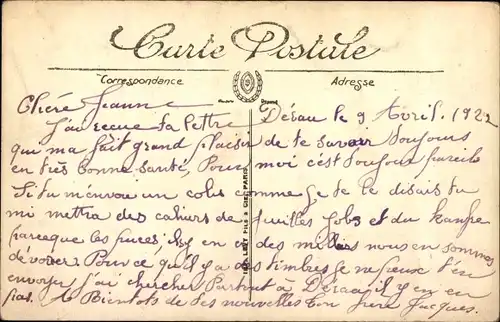 Carte Postale
Correspondance
Adresse
Chère Jeanne
Débau le 9 Avril. 1922
J'ai reçue ta lettre
qui ma fait grand plaisir de te savoir toujours
en très bonne santé, Pour moi c'est toujour pareils
Si tu m'envou un colis comme je te le disais tu
mi mettra des cahiers de feuilles Jobs et du
parceque les puces il y en a des milliers nous en sommes
dévorer. Pour ce qu'il y a des timbres je ne peuse t'en
envoyer j'ai chercher Partout a il y en en
pas. A Bientots de tes nouvelles ton frère Jacques.
LEVY FILS & CIE, PARIS